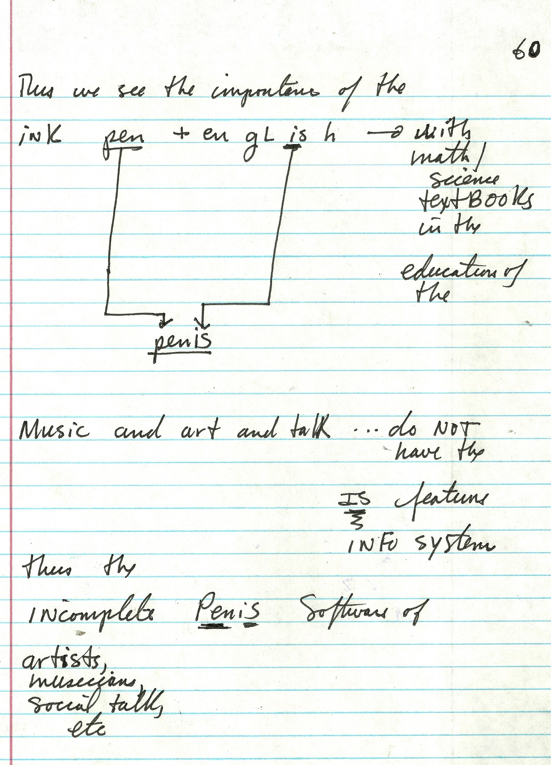 60
Thus we see the importance of the
iNK pen + en gL is h → with
math/
science
textBOOKS
in the
education of
the
penis
Music and art and talk ... do NOT
have the
IS feature
INFO system
thus the
INcomplete Penis Software of
artists,
musicians,
social talk,
etc